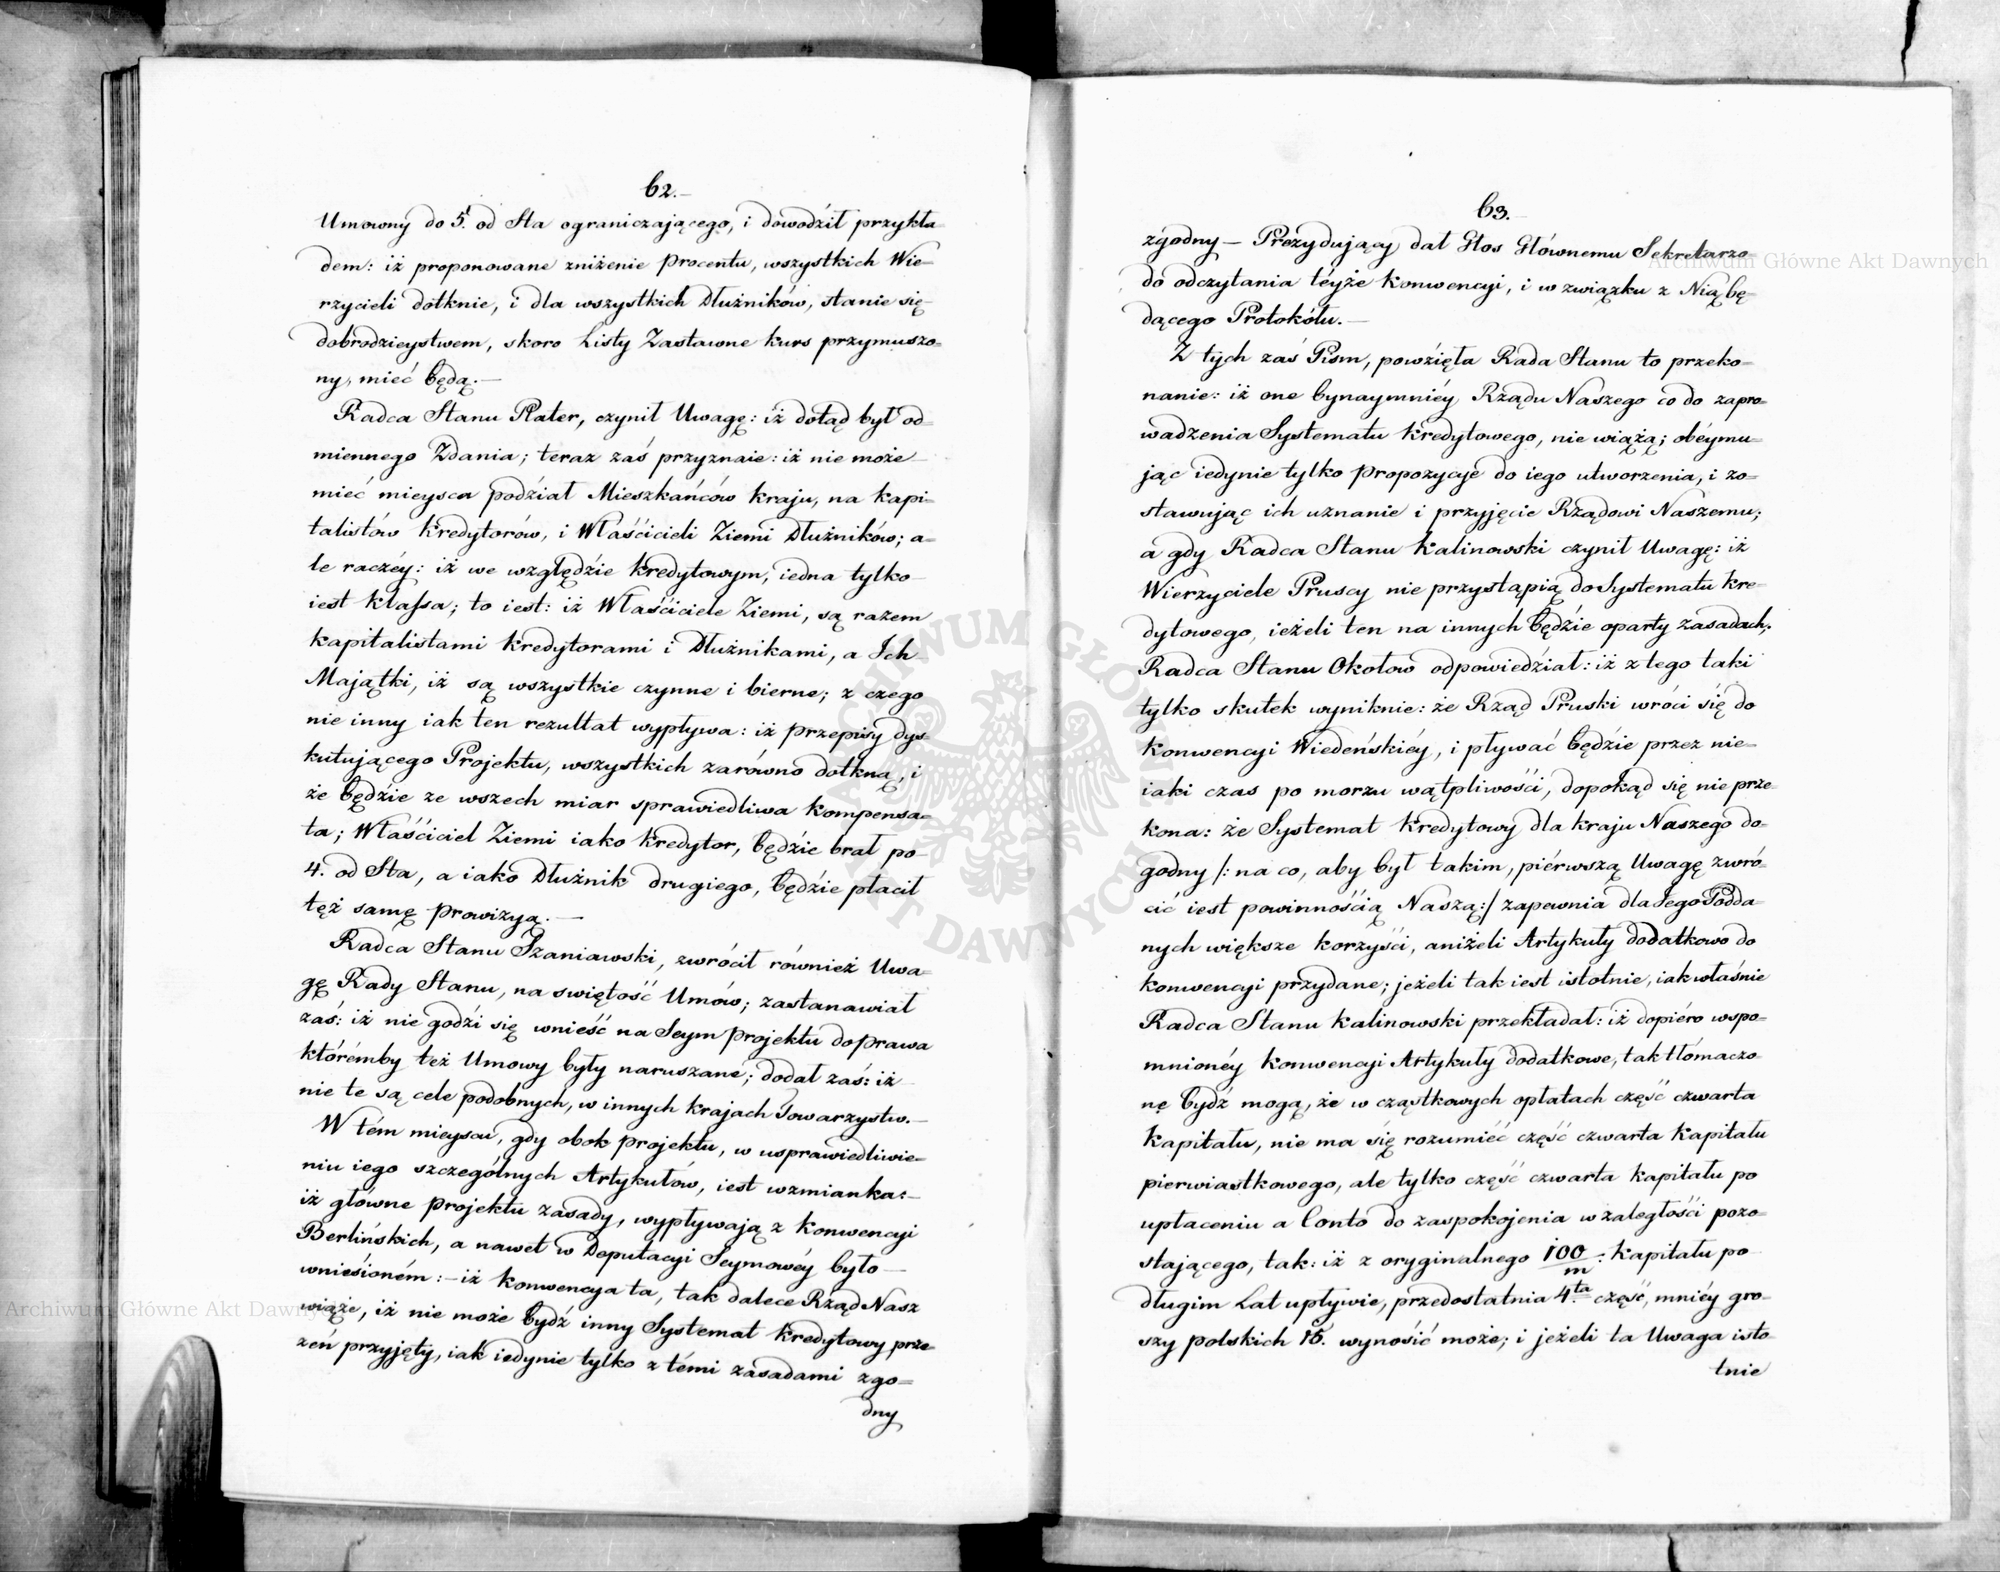 62.
Umowny do 5. od Sta ograniczającego, i dowodził przykła=
dem: iż proponowane zniżenie Procentu, wszystkich Wie=
rzycieli dotknie, i dla wszystkich Dłużników, stanie się
dobrodzieystwem, skoro Listy Zastawne kurs przymuszo=
ny, mieć będą.—
Radca Stanu Plater, czynił Uwagę: iż dotąd był od=
miennego Zdania; teraz zaś przyznaie: iż nie może
mieć mieysca podział Mieszkańców kraju, na kapi=
talistów kredytorów, i Właścicieli Ziemi Dłużników; a=
le raczéy: iż we względzie kredytowym, iedna tylko
iest klassa; to iest: iż Właściciele Ziemi, są razem
kapitalistami kredytorami i Dłużnikami, a Ich
Majątki, iż są wszystkie czynne i bierne; z czego
nie inny iak ten rezultat wypływa: iż przepisy dys=
kutującego Projektu, wszystkich zarówno dotkną, i
że będzie ze wszech miar sprawiedliwa kompensa=
ta; Właściciel Ziemi iako kredytor, będzie brał po
4. od Sta, a iako Dłużnik drugiego, będzie płacił
też samę prowizyą.—
Radca Stanu Szaniawski, zwrócił również Uwa=
gę Rady Stanu, na swiętość Umów; zastanawiał
zaś: iż nie godzi się wnieść na Seym projektu do prawa
którémby też Umowy były naruszane; dodał zaś: iż
nie te są cele podobnych, w innych krajach Towarzystw.—
W tém mieyscu, gdy obok projektu, w usprawiedliwie=
niu iego szczególnych Artykułów, iest wzmianka:—
iż główne projektu zasady, wypływają z konwencyi
Berlińskich, a nawet w Deputacyi Seymowéy było
wniesioném:—iż konwencya ta, tak dalece Rząd Nasz
wiąże, iż nie może bydź inny Systemat kredytowy prze=
zeń przyjęty, iak iedynie tylko z témi zasadami zgo=
dny
63.
zgodny— Prezydujący dał Głos Głównemu Sekretarzo=
do odczytania téyże konwencyi, i w związku z Nią bę=
dącego Protokółu.—
Z tych zaś Pism, powzięła Rada Stanu to przeko=
nanie: iż one bynaymniéy Rządu Naszego co do zapro=
wadzenia Systematu kredytowego, nie wiążą; obéymu=
jąc iedynie tylko propozycye do iego utworzenia, i zo=
stawując ich uznanie i przyjęcie Rządowi Naszemu;
a gdy Radca Stanu Kalinowski czynił Uwagę: iż
Wierzyciele Pruscy nie przystąpią do Systematu kre=
dytowego, ieżeli ten na innych będzie oparty zasadach;
Radca Stanu Okołow odpowiedział: iż z tego taki
tylko skutek wyniknie: że Rząd Pruski wróci się do
konwencyi Wiedeńskiéy, i pływać będzie przez nie=
iaki czas po morzu wątpliwości, dopokąd się nie prze
kona: że Systemat kredytowy dla kraju Naszego do=
godny /: na co, aby był takim, piérwszą Uwagę zwró=
cić iest powinnością Naszą:/ zapewnia dla Jego Podda=
nych większe korzyści, aniżeli Artykuły dodatkowo do
konwencyi przydane; jeżeli tak iest istotnie, iak właśnie
Radca Stanu Kalinowski przekładał: iż dopiéro wspo=
mnionéy konwencyi Artykuły dodatkowe, tak tłómaczo
ne bydź mogą, że w cząstkowych opłatach część czwarta
kapitału, nie ma się rozumieć część czwarta kapitału
pierwiastkowego, ale tylko część czwarta kapitału po
upłaceniu a Conto do zaspokojenia w zaległości pozo=
stającego, tak: iż z oryginalnego 100/m: kapitału po
długim Lat upływie, przedostatnia 4ta część, mniéy gro=
szy polskich 15. wynosić może; i jeżeli ta Uwaga isto=
tnie
Archiwum Główne Akt Dawnych
Archiwum Główne Akt Dawnych
ARCHIWUM GŁÓWNE AKT DAWNYCH